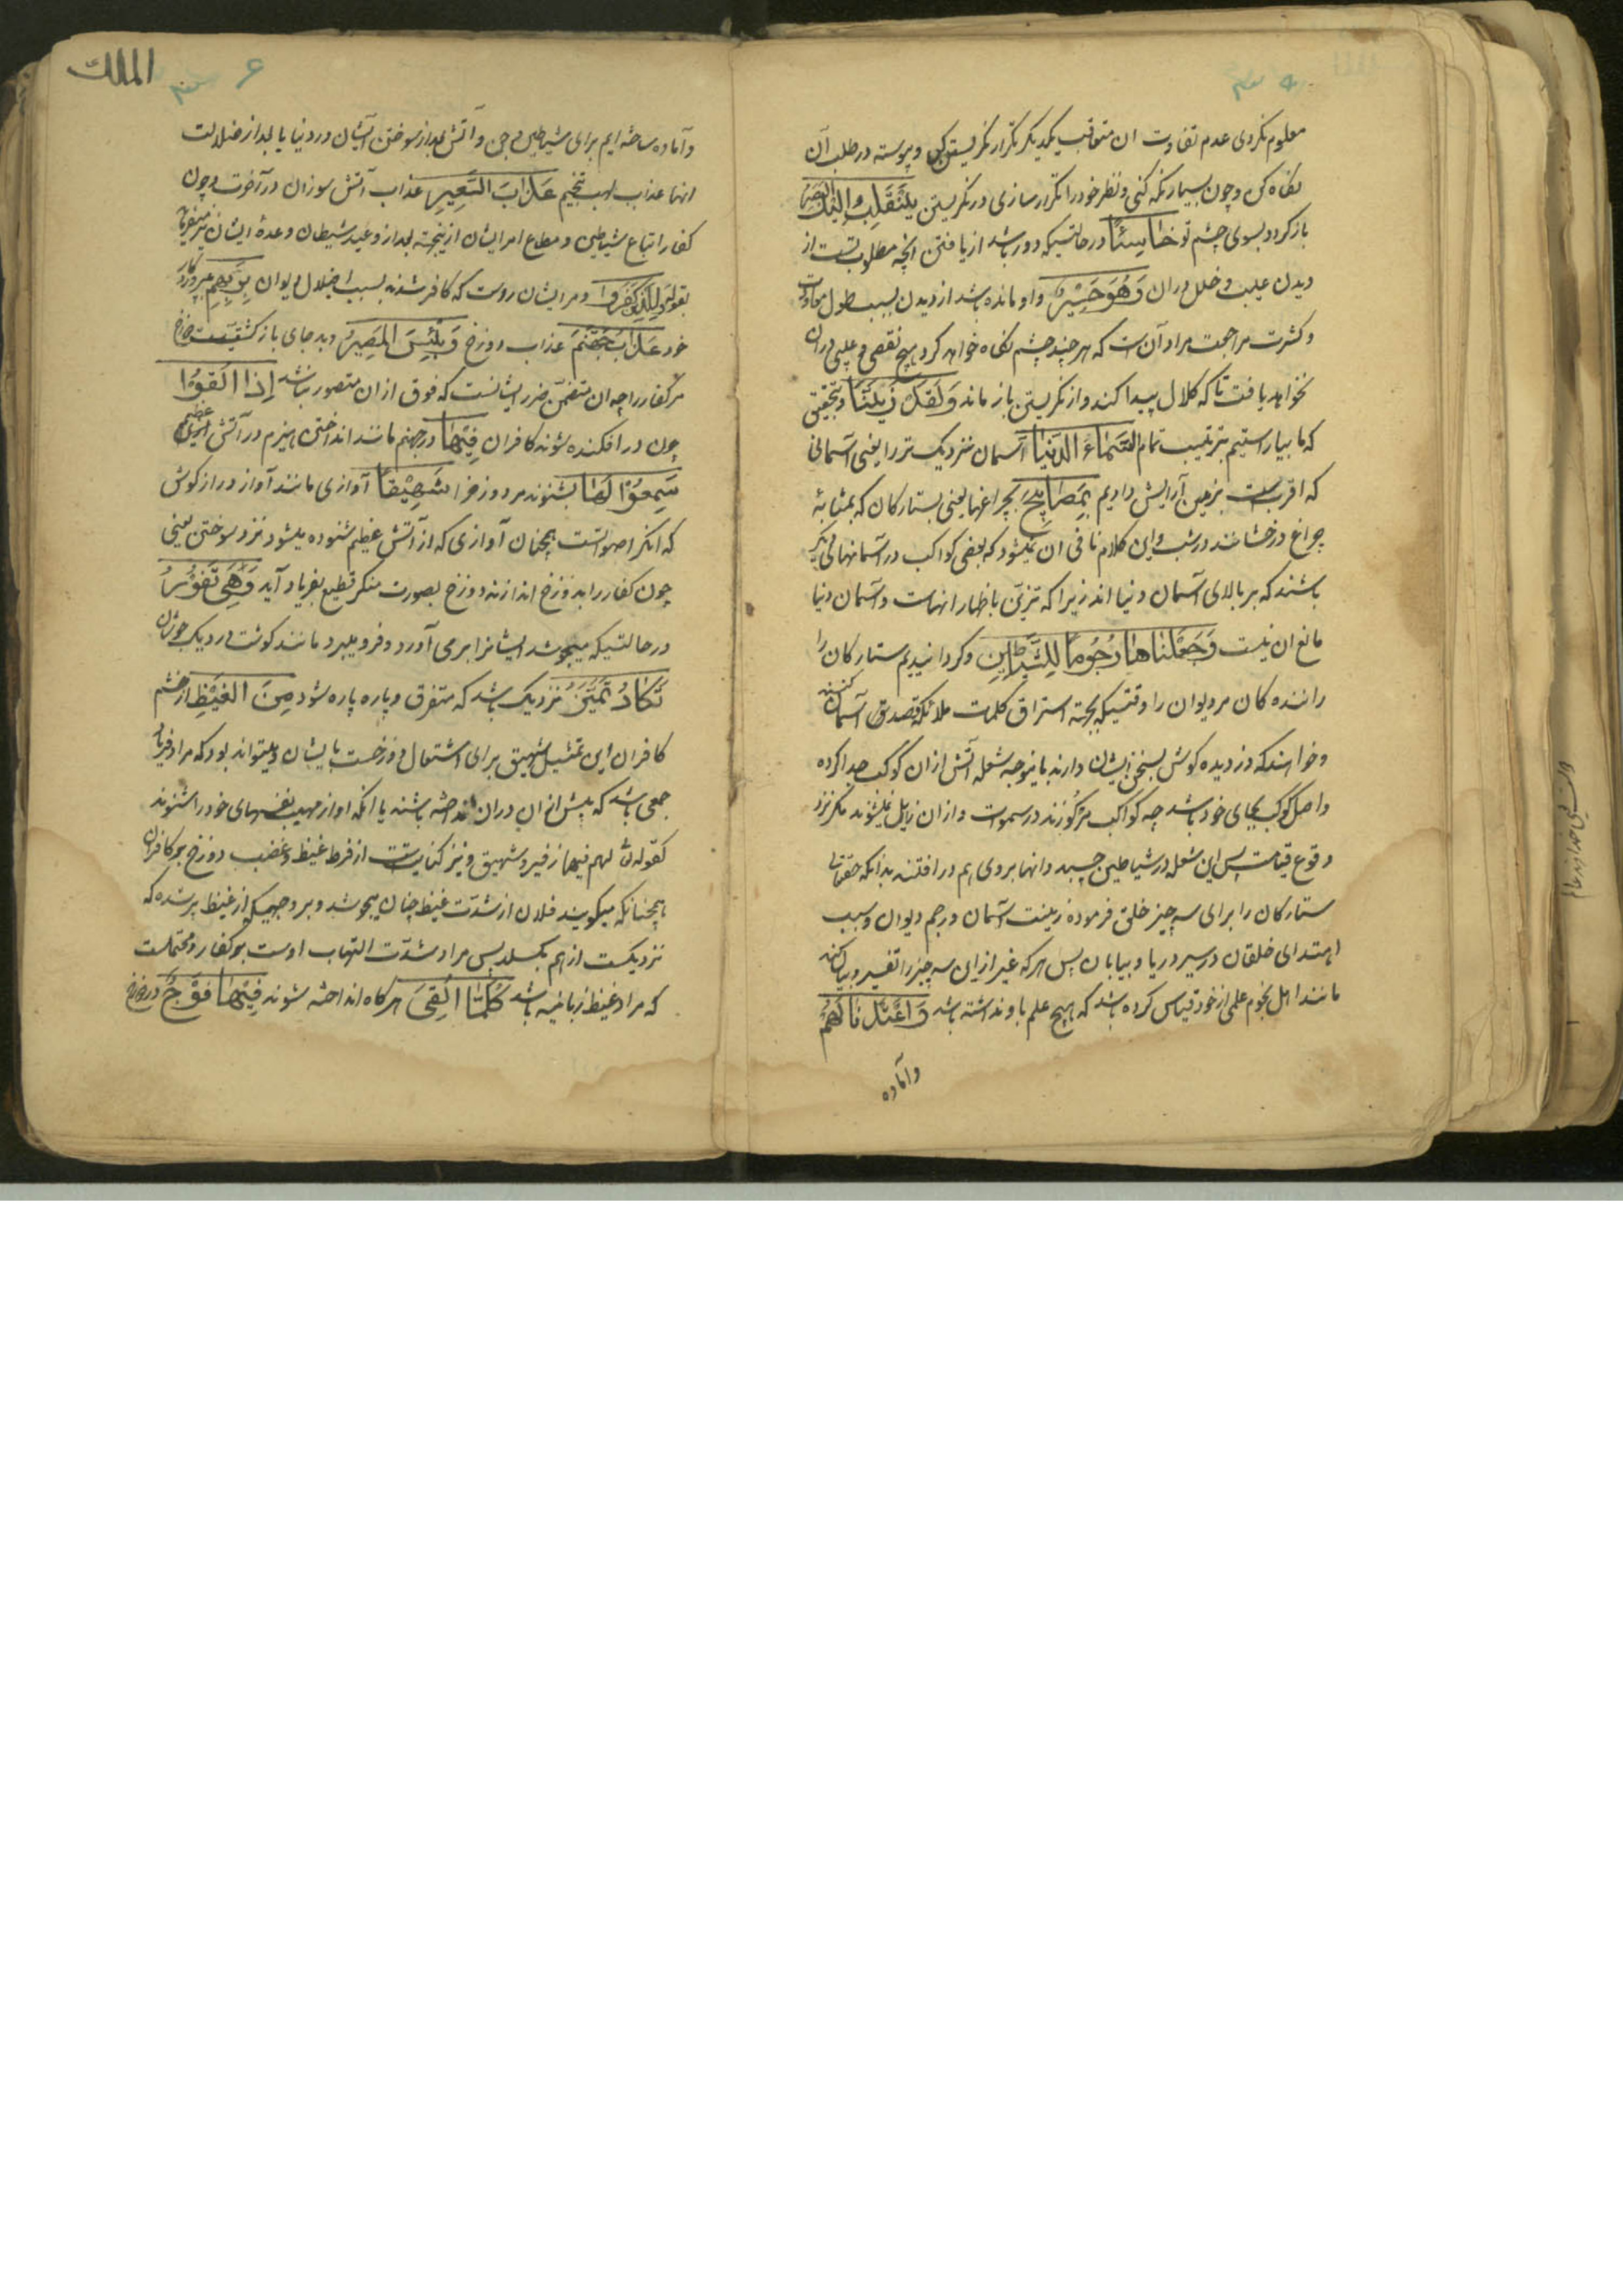 معلوم نکردی عدم تفاوت ان متعاقب یکدیگر تکرار نگریستن کن و پیوسته در طلب آن
نگاه کن و چون بسیار نگه کنی و نظر خود را تکرار سازی در نگریستن ینقلب الیک البصر
باز گردد بسوی چشم تو خاسئا در حالتیکه دور باشد از یافتن انچه مطلوب تست از
دیدن عیب و خلل دران وهو حسیر و او مانده باشد از دیدن بسبب طول معاودت
و کثرت مراجعت مراد آن است که هر چند چشم نگاه خواهد کرد هیچ نقصی و عیبی دران
نخواهد یافت تا که کلال پیدا کند و از نگریستن باز ماند ولقد زینا و بتحقیق
که ما بیاراستیم بترتیب تمام السماء الدنیا آسمان نزدیک تر را یعنی آسمانی
که اقربست بزمین آرایش دادیم بمصابیح بچراغها یعنی بستارکان که بمثابهٔ
چراغ درخشانند در شب و این کلام نافی ان نمیشود که بعضی کواکب در آسمانهای دیگر
باشند که بر بالای آسمان دنیا اند زیرا که تزیّن باظهار انهاست و آسمان دنیا
مانع ان نیست وجعلناها رجوما للشیاطین و کردانیدیم ستارکان را
راننده کان مر دیوان را وقتیکه بجهته استراق کلمات ملائکه قصد آسمان کنند
و خواهند که دزدیده کوش بسخن ایشان دارند باینوجه شعله آتش ازان کوکب جدا کرده
و اصل کوکب بجای خود باشد چه کواکب مرکوزند در سموات و ازان زایل نمیشوند مکر نزد
وقوع قیامت پس این شعله در شیاطین چسپد و انها بروی هم در افتند بدانکه حقتعالی
ستارکان را برای سه چیز خلق فرموده زینت آسمان و رجم دیوان و سبب
اهتدای خلقان در سیر دریا و بیابان پس هر که غیر ازین سه چیز را تفسیر و بیان کند
مانند اهل نجوم علمی از خود قیاس کرده باشد که هیچ علم باو نداشته باشد واعتدنا لهم
وآماده
الملک
۶
وآماده ساخته ایم برای شیاطین جن و آتش بعد از سوختن ایشان در دنیا یا بعد از ضلالت
انها عذاب السعیر عذاب آتش سوزان در آخرت و چون
کفار اتباع شیاطین و مطاع امر ایشان ازینجهته بعد از وعید شیطان وعدهٔ ایشان
بقوله وللذین کفروا و مر ایشان روست که کافر شدند بسبب اضلال دیوان بربهم بپروردکار
خود عذاب جهنم عذاب دوزخ وبئس المصیر و بد جای باز کشتیست دوزخ
مر کفار را چه ان متضمن ضرر ایشانست که فوق ازان متصور نباشد اذا القوا
چون در افکنده شوند کافران فیها در جهنم مانند انداختن هیزم در آتش عظیم
سمعوا لها بشنوند مر دوزخ را شهیقا آوازی مانند آواز دراز کوش
که انکر اصواتست همچنان آوازی که از آتش عظیم شنوده میشود نزد سوختن یعنی
چون کفار را بدوزخ اندازند دوزخ بصورت منکر فظیع بفریاد آید وهی تفور
در حالتیکه میجوشد ایشانرا بر می آورد و فرو میبرد مانند کوشت در دیک جوشان
تکاد تمیز نزدیک باشد که متفرق و پاره پاره شود من الغیظ از خشم
کافران این تمثیل شهیق برای اشتعال دوزخست بایشان و میتواند بود که مراد فریاد
جمعی باشد که پیش ازان دران انداخته باشند یا انکه اواز مهیب نفسهای خود را شنوند
کقوله تع لهم فیها زفیر و شهیق و نیز کنایتست از فرط غیظ و غضب دوزخ بر کافران
همچنانکه میکویند فلان از شدّت غیظ چنان میجوشد و بر وجهیکه از غیظ پر شده که
نزدیکست از هم بکسلد پس مراد شدّت التهاب اوست بر کفار و محتملست
که مراد غیظ زبانیه باشد کلما القی هر کاه انداخته شوند فیها فوج در دوزخ